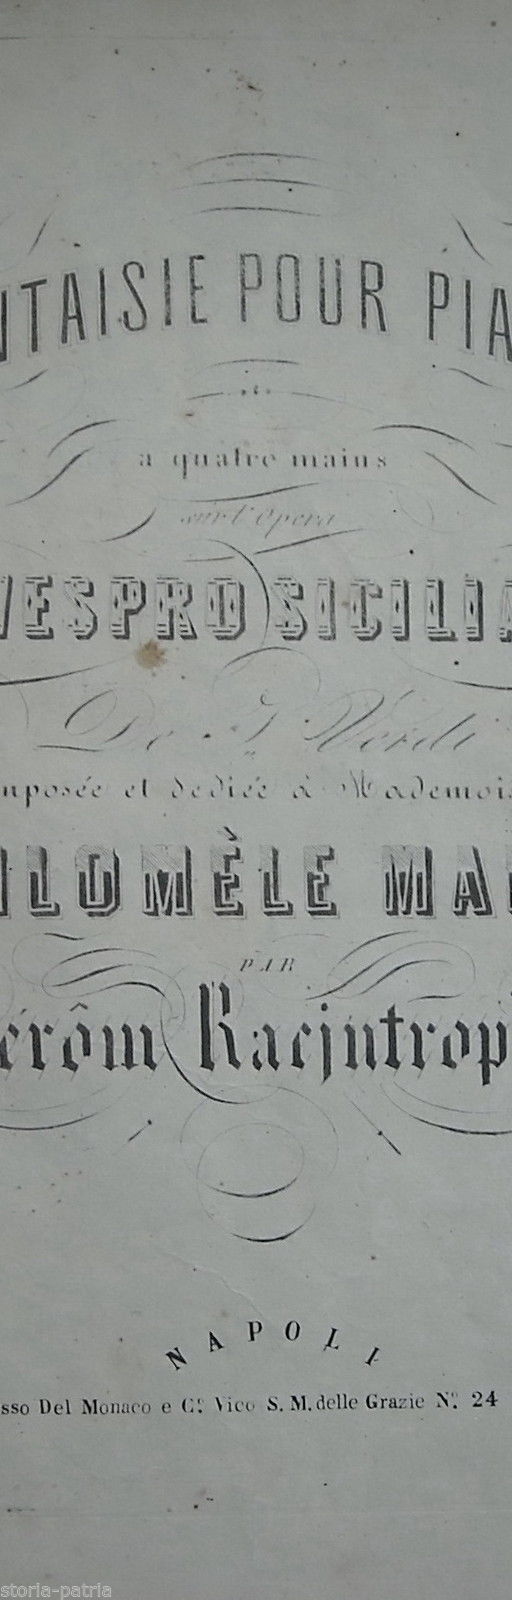 NTAISIE POUR PIA
a quatre mains
sur l'Opera
VESPRO SICILIA
De J. Verdi
mposée et dediée à Mademois
ILOMÈLE MA
PAR
érôm Racjntrop
NAPOLI
sso Del Monaco e C.º Vico S. M. delle Grazie N.º 24
storia-patria